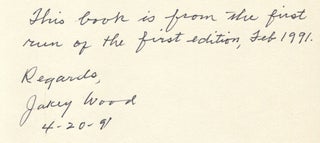 This book is from the first
run of the first edition, Feb 1991.
Regards,
Jakey Wood
4-20-91